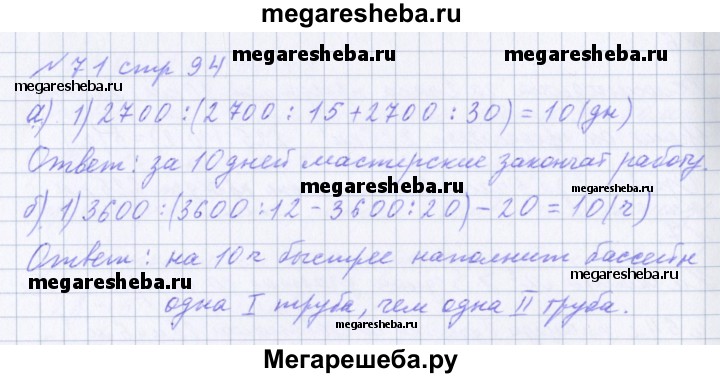 megaresheba.ru
№ 71 стр 94
megaresheba.ru
megaresheba.ru
а). 1) 2700 : (2700 : 15 + 2700 : 30) = 10 (дн)
Ответ: за 10 дней мастерские закончат работу.
megaresheba.ru
б). 1) 3600 : (3600 : 12 - 3600 : 20) - 20 = 10 (ч)
Ответ: на 10 ч быстрее наполнит бассейн
megaresheba.ru
megaresheba.ru
одна I труба, чем одна II труба.
megaresheba.ru
Мегарешеба.ру